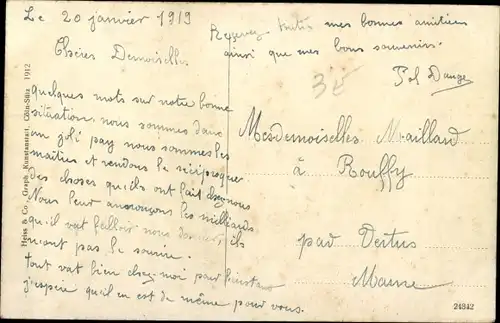 Le 20 janvier 1919
Chères Demoiselles
Quelques mots sur notre bonne
situation, nous sommes dans
un joli pay nous sommes les
maîtres et rendons le réciproque
des choses qu'ils ont fait chez nous
Nous leur annonçons les milliards
qu'il vat falloir nous donner, ils
n'ont pas le sourire.
tout vat bien chez moi pour l'instant
j'espère qu'il en est de même pour vous.
Recevez toutes mes bonnes amitiées
ainsi que mes bons souvenirs.
3E
Mesdemoiselles Maillard
à Rouffy
par Vertus
Marne
Heiss & Co., Graph. Kunstanstalt, Cöln-Sülz 1912
24842